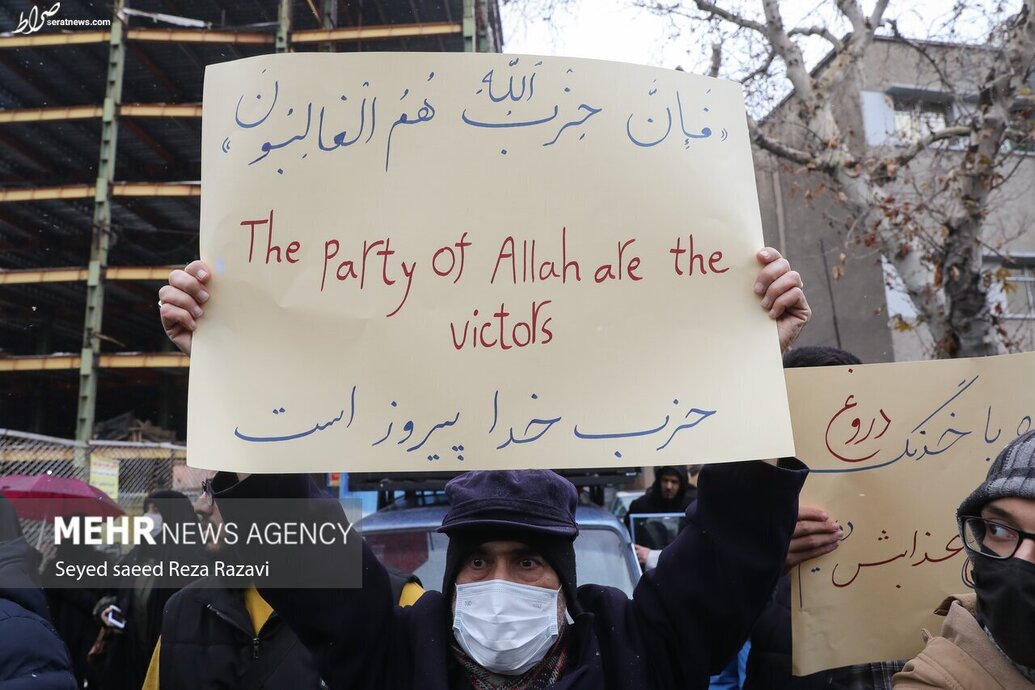 صراط
seratnews.com
«فَإِنَّ حِزْبَ اللَّهِ هُمُ الْغَالِبُونَ»
The party of Allah are the
victors
حزب خدا پیروز است
دروغ
با خدنگ
عذابش
MEHR NEWS AGENCY
Seyed saeed Reza Razavi